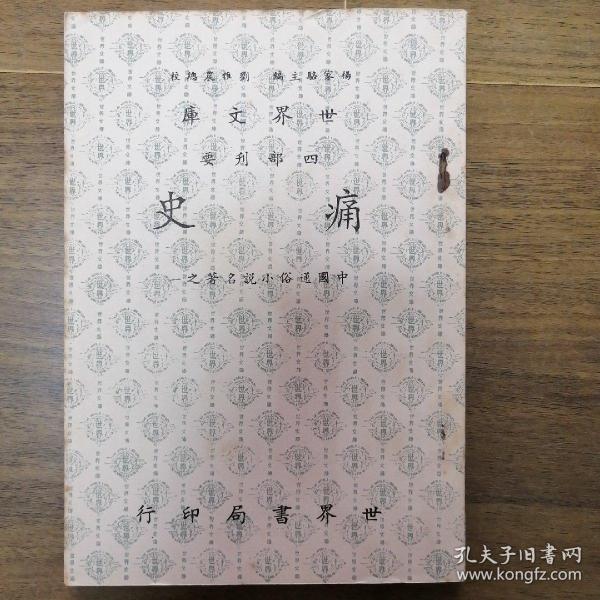 楊家駱主編 劉雅農總校
世界文庫
四部刊要
痛史
中國通俗小說名著之一
世界書局印行
孔夫子旧书网
www.kongfz.com